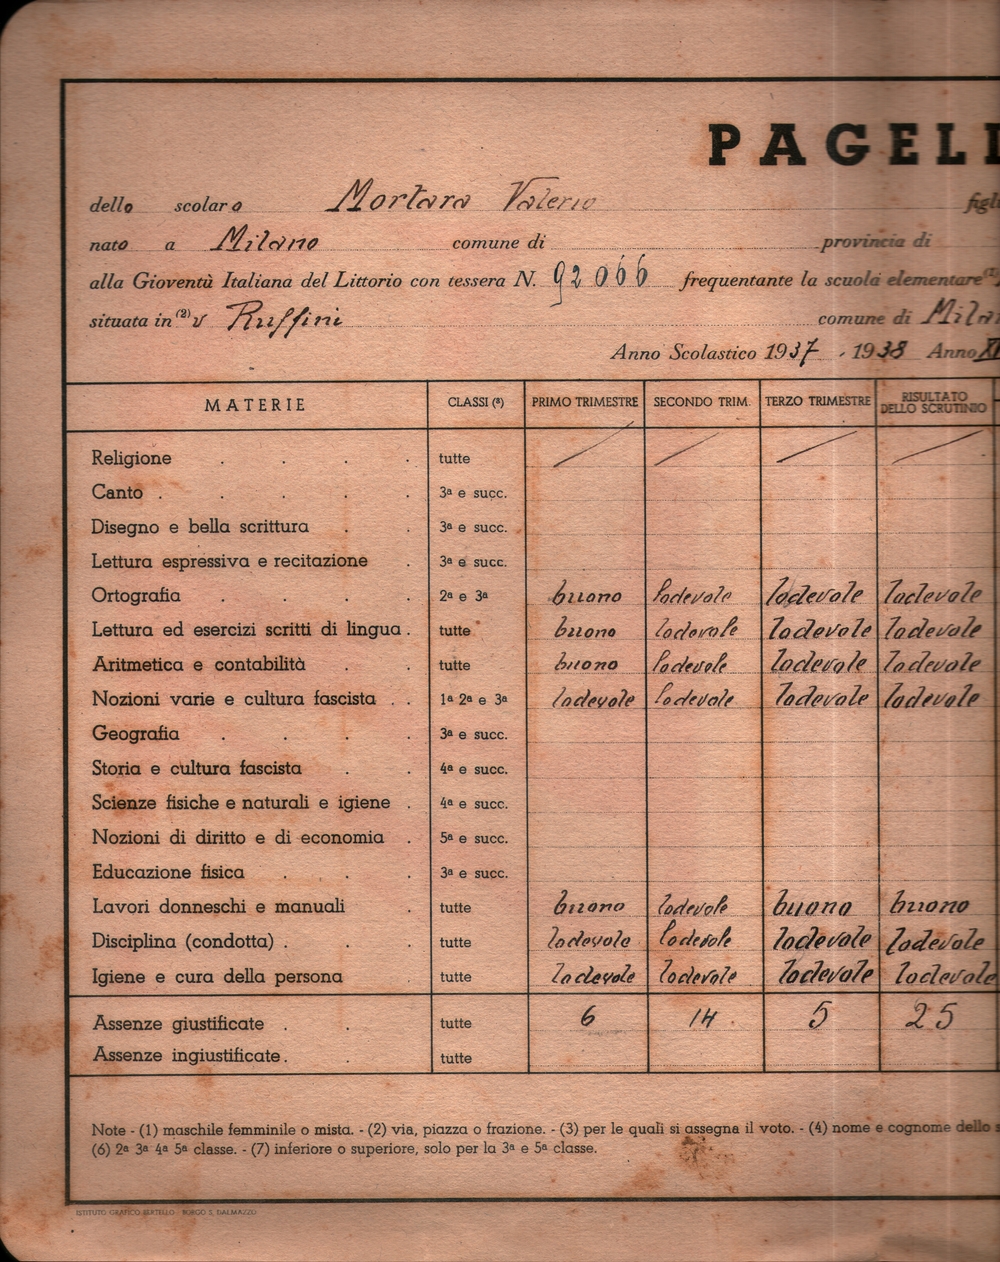 PAGELL
dello scolaro Mortara Valerio figli
nato a Milano comune di provincia di
alla Gioventù Italiana del Littorio con tessera N. 92066 frequentante la scuola elementare (1)
situata in (2) v Ruffini comune di Milan
Anno Scolastico 1937 - 1938 Anno XI
MATERIE CLASSI (ª) PRIMO TRIMESTRE SECONDO TRIM. TERZO TRIMESTRE RISULTATO DELLO SCRUTINIO
Religione . . . . tutte
Canto . . . . . 3ª e succ.
Disegno e bella scrittura . . 3ª e succ.
Lettura espressiva e recitazione . 3ª e succ.
Ortografia . . . . 2ª e 3ª buono lodevole lodevole lodevole
Lettura ed esercizi scritti di lingua . tutte buono lodevole lodevole lodevole
Aritmetica e contabilità . . tutte buono lodevole lodevole lodevole
Nozioni varie e cultura fascista . . 1ª 2ª e 3ª lodevole lodevole lodevole lodevole
Geografia . . . . 3ª e succ.
Storia e cultura fascista . . 4ª e succ.
Scienze fisiche e naturali e igiene . 4ª e succ.
Nozioni di diritto e di economia . 5ª e succ.
Educazione fisica . . . 3ª e succ.
Lavori donneschi e manuali . . tutte buono lodevole buono buono
Disciplina (condotta) . . . tutte lodevole lodevole lodevole lodevole
Igiene e cura della persona . . tutte lodevole lodevole lodevole lodevole
Assenze giustificate . . tutte 6 14 5 25
Assenze ingiustificate . . tutte
Note - (1) maschile femminile o mista. - (2) via, piazza o frazione. - (3) per le quali si assegna il voto. - (4) nome e cognome dello s
(6) 2ª 3ª 4ª 5ª classe. - (7) inferiore o superiore, solo per la 3ª e 5ª classe.
ISTITUTO GRAFICO BERTELLO - BORGO S. DALMAZZO